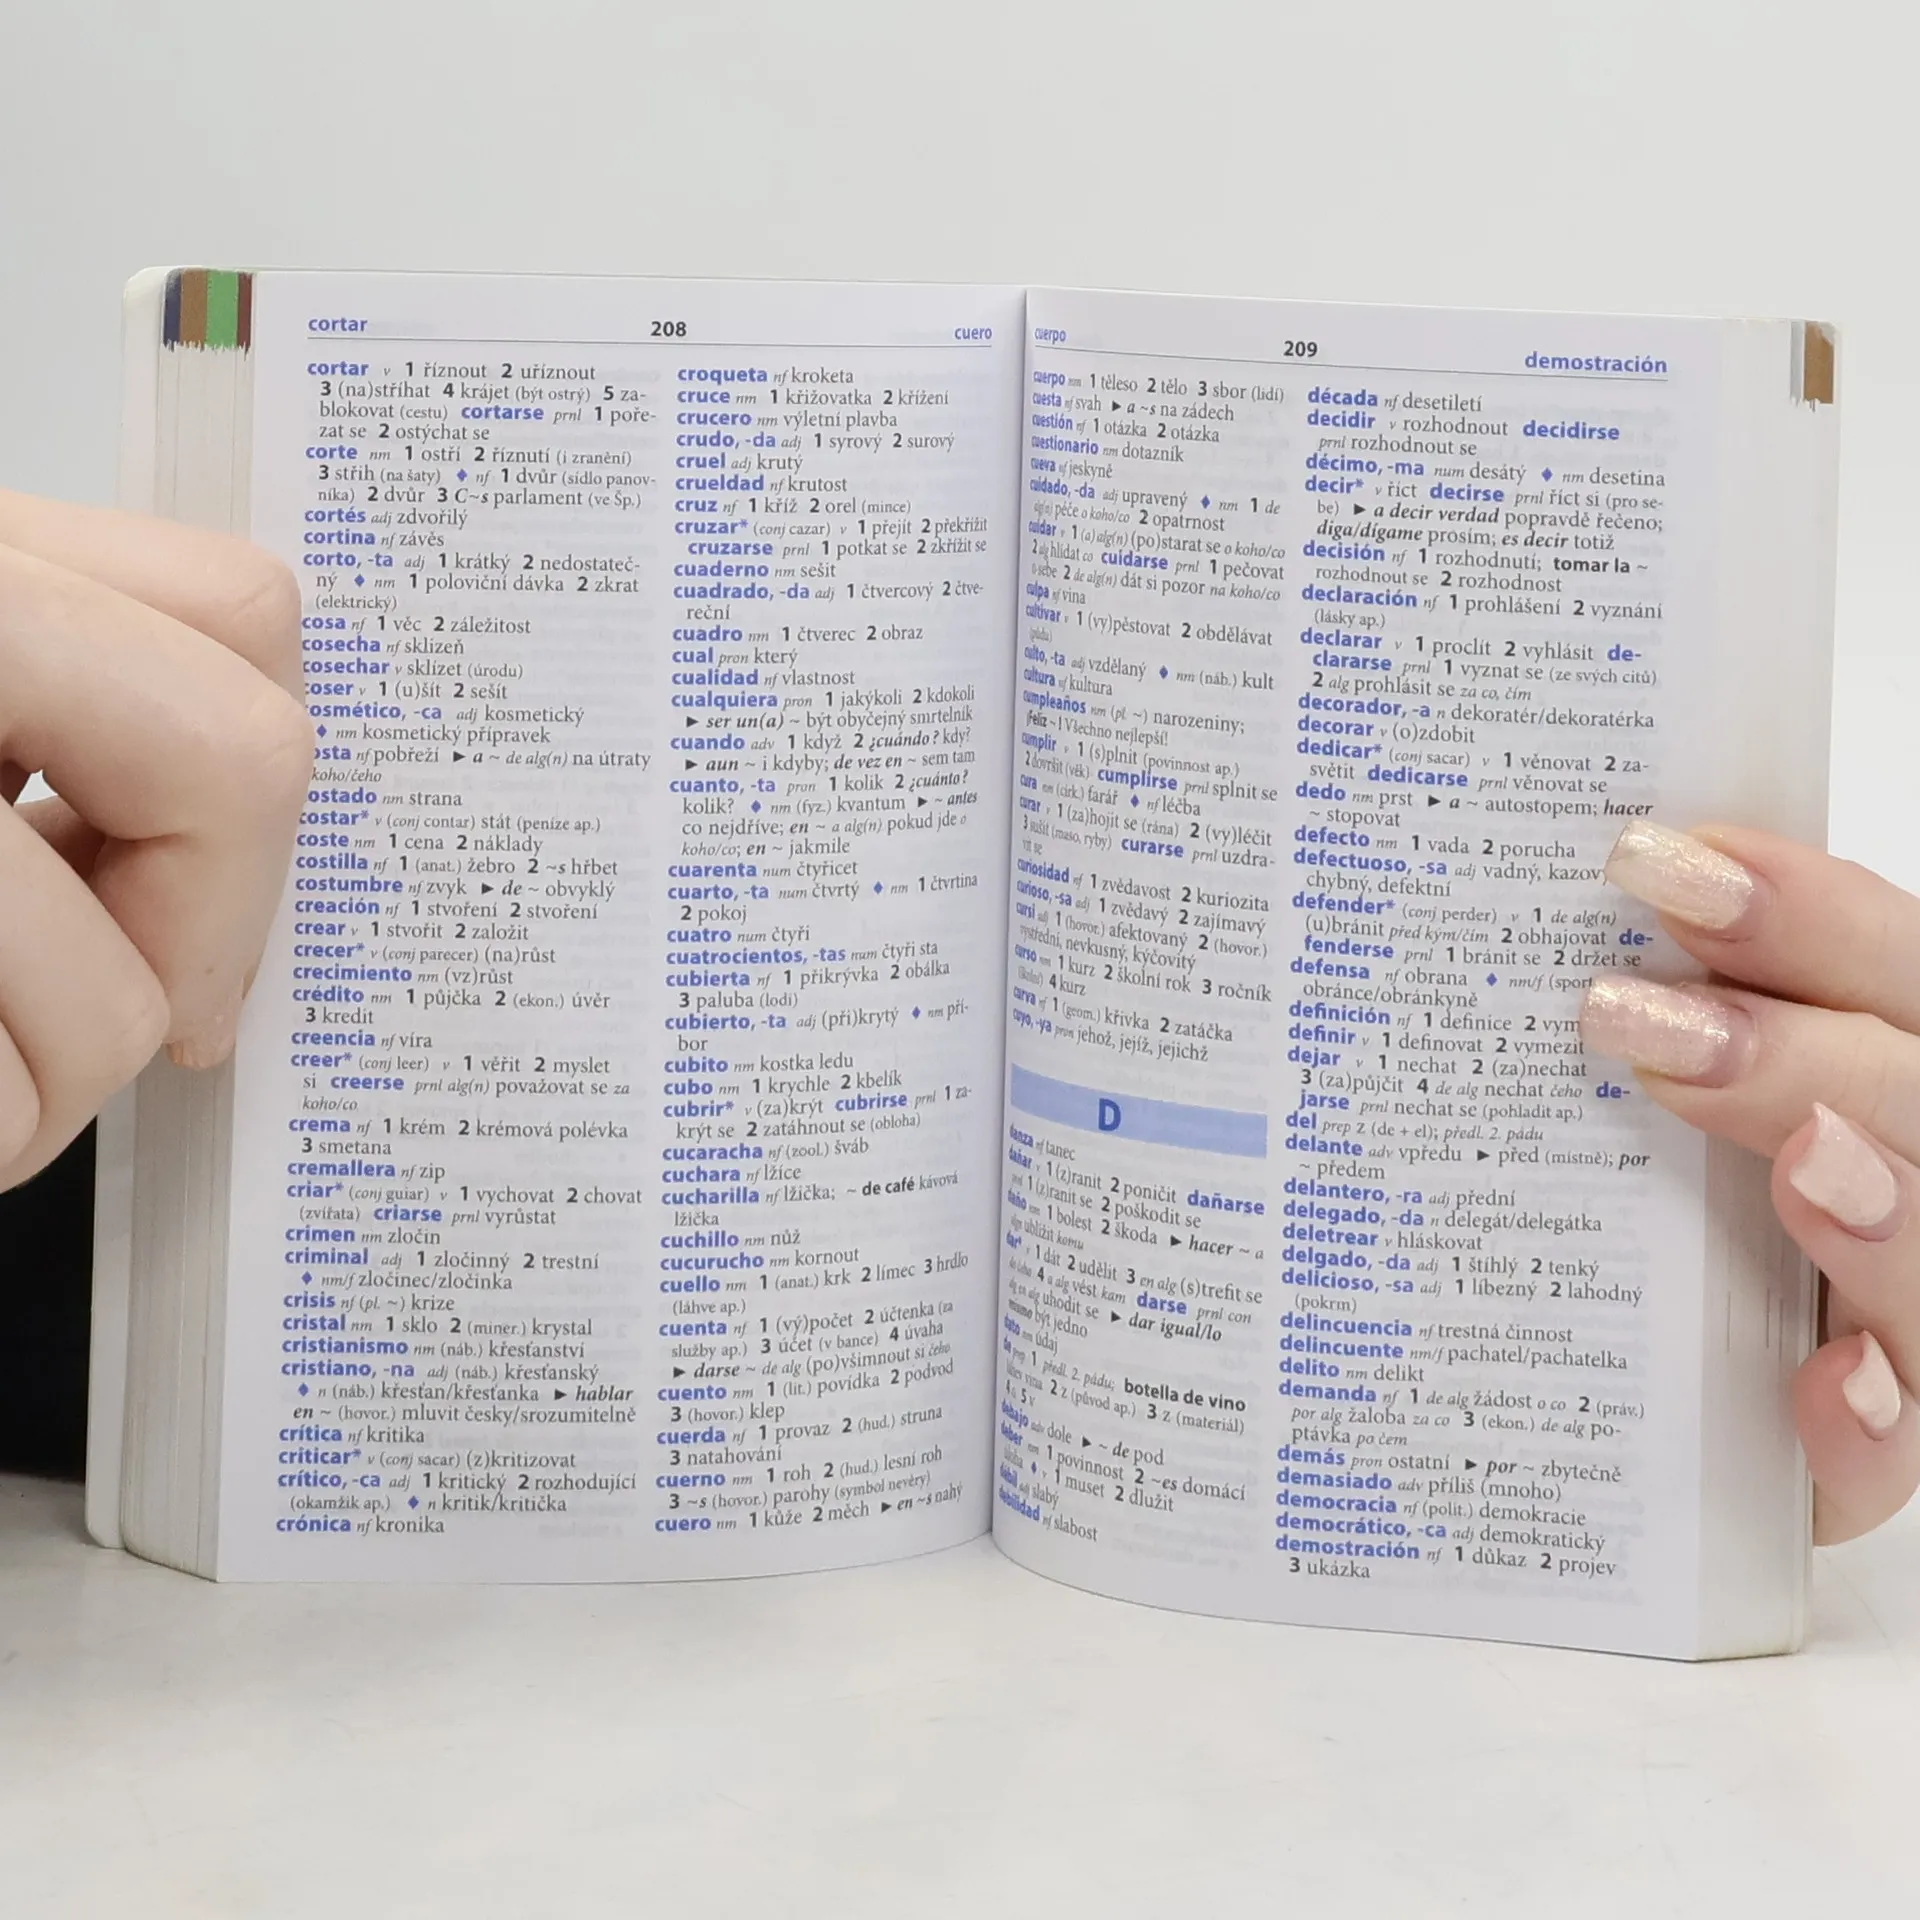 cortar 208 cuero
cortar v 1 říznout 2 uříznout
3 (na)stříhat 4 krájet (být ostrý) 5 za-
blokovat (cestu) cortarse prnl 1 poře-
zat se 2 ostýchat se
corte nm 1 ostří 2 říznutí (i zranění)
3 střih (na šaty) ♦ nf 1 dvůr (sídlo panov-
níka) 2 dvůr 3 C~s parlament (ve Šp.)
cortés adj zdvořilý
cortina nf závěs
corto, -ta adj 1 krátký 2 nedostateč-
ný ♦ nm 1 poloviční dávka 2 zkrat
(elektrický)
cosa nf 1 věc 2 záležitost
cosecha nf sklizeň
cosechar v sklízet (úrodu)
coser v 1 (u)šít 2 sešít
cosmético, -ca adj kosmetický
♦ nm kosmetický přípravek
costa nf pobřeží ► a ~ de alg(n) na útraty
koho/čeho
costado nm strana
costar* v (conj contar) stát (peníze ap.)
coste nm 1 cena 2 náklady
costilla nf 1 (anat.) žebro 2 ~s hřbet
costumbre nf zvyk ► de ~ obvyklý
creación nf 1 stvoření 2 stvoření
crear v 1 stvořit 2 založit
crecer* v (conj parecer) (na)růst
crecimiento nm (vz)růst
crédito nm 1 půjčka 2 (ekon.) úvěr
3 kredit
creencia nf víra
creer* (conj leer) v 1 věřit 2 myslet
si creerse prnl alg(n) považovat se za
koho/co
crema nf 1 krém 2 krémová polévka
3 smetana
cremallera nf zip
criar* (conj guiar) v 1 vychovat 2 chovat
(zvířata) criarse prnl vyrůstat
crimen nm zločin
criminal adj 1 zločinný 2 trestní
♦ nm/f zločinec/zločinka
crisis nf (pl. ~) krize
cristal nm 1 sklo 2 (miner.) krystal
cristianismo nm (náb.) křesťanství
cristiano, -na adj (náb.) křesťanský
♦ n (náb.) křesťan/křesťanka ► hablar
en ~ (hovor.) mluvit česky/srozumitelně
crítica nf kritika
criticar* v (conj sacar) (z)kritizovat
crítico, -ca adj 1 kritický 2 rozhodující
(okamžik ap.) ♦ n kritik/kritička
crónica nf kronika
croqueta nf kroketa
cruce nm 1 křižovatka 2 křížení
crucero nm výletní plavba
crudo, -da adj 1 syrový 2 surový
cruel adj krutý
crueldad nf krutost
cruz nf 1 kříž 2 orel (mince)
cruzar* (conj cazar) v 1 přejít 2 překřížit
cruzarse prnl 1 potkat se 2 zkřížit se
cuaderno nm sešit
cuadrado, -da adj 1 čtvercový 2 čtve-
reční
cuadro nm 1 čtverec 2 obraz
cual pron který
cualidad nf vlastnost
cualquiera pron 1 jakýkoli 2 kdokoli
► ser un(a) ~ být obyčejný smrtelník
cuando adv 1 když 2 ¿cuándo? kdy?
► aun ~ i kdyby; de vez en ~ sem tam
cuanto, -ta pron 1 kolik 2 ¿cuánto?
kolik? ♦ nm (fyz.) kvantum ► ~ antes
co nejdříve; en ~ a alg(n) pokud jde o
koho/co; en ~ jakmile
cuarenta num čtyřicet
cuarto, -ta num čtvrtý ♦ nm 1 čtvrtina
2 pokoj
cuatro num čtyři
cuatrocientos, -tas num čtyři sta
cubierta nf 1 přikrývka 2 obálka
3 paluba (lodi)
cubierto, -ta adj (při)krytý ♦ nm pří-
bor
cubito nm kostka ledu
cubo nm 1 krychle 2 kbelík
cubrir* v (za)krýt cubrirse prnl 1 za-
krýt se 2 zatáhnout se (obloha)
cucaracha nf (zool.) šváb
cuchara nf lžíce
cucharilla nf lžička; ~ de café kávová
lžička
cuchillo nm nůž
cucurucho nm kornout
cuello nm 1 (anat.) krk 2 límec 3 hrdlo
(láhve ap.)
cuenta nf 1 (vý)počet 2 účtenka (za
služby ap.) 3 účet (v bance) 4 úvaha
► darse ~ de alg (po)všimnout si čeho
cuento nm 1 (lit.) povídka 2 podvod
3 (hovor.) klep
cuerda nf 1 provaz 2 (hud.) struna
3 natahování
cuerno nm 1 roh 2 (hud.) lesní roh
3 ~s (hovor.) parohy (symbol nevěry)
cuero nm 1 kůže 2 měch ► en ~s nahý
cuerpo 209 demostración
cuerpo nm 1 těleso 2 tělo 3 sbor (lidí)
cuesta nf svah ► a ~s na zádech
cuestión nf 1 otázka 2 otázka
cuestionario nm dotazník
cueva nf jeskyně
cuidado, -da adj upravený ♦ nm 1 de
alg(n) péče o koho/co 2 opatrnost
cuidar v 1 (a) alg(n) (po)starat se o koho/co
2 alg hlídat co cuidarse prnl 1 pečovat
o sebe 2 de alg(n) dát si pozor na koho/co
culpa nf vina
cultivar v 1 (vy)pěstovat 2 obdělávat
(půdu)
culto, -ta adj vzdělaný ♦ nm (náb.) kult
cultura nf kultura
cumpleaños nm (pl. ~) narozeniny;
¡Feliz ~! Všechno nejlepší!
cumplir v 1 (s)plnit (povinnost ap.)
2 dovršit (věk) cumplirse prnl splnit se
cura nm (círk.) farář ♦ nf léčba
curar v 1 (za)hojit se (rána) 2 (vy)léčit
3 sušit (maso, ryby) curarse prnl uzdra-
vit se
curiosidad nf 1 zvědavost 2 kuriozita
curioso, -sa adj 1 zvědavý 2 zajímavý
cursi adj 1 (hovor.) afektovaný 2 (hovor.)
výstřední, nevkusný, kýčovitý
curso nm 1 kurz 2 školní rok 3 ročník
(školní) 4 kurz
curva nf 1 (geom.) křivka 2 zatáčka
cuyo, -ya pron jehož, jejíž, jejichž
D
danza nf tanec
dañar v 1 (z)ranit 2 poničit dañarse
prnl 1 (z)ranit se 2 poškodit se
daño nm 1 bolest 2 škoda ► hacer ~ a
algn ublížit komu
dar* v 1 dát 2 udělit 3 en alg (s)trefit se
do čeho 4 a alg vést kam darse prnl con
alg en alg uhodit se ► dar igual/lo
mismo být jedno
dato nm údaj
de prep 1 předl. 2. pádu; botella de vino
láhev vína 2 z (původ ap.) 3 z (materiál)
4 o 5 v
debajo adv dole ► ~ de pod
deber nm 1 povinnost 2 ~es domácí
úloha ♦ v 1 muset 2 dlužit
débil adj slabý
debilidad nf slabost
década nf desetiletí
decidir v rozhodnout decidirse
prnl rozhodnout se
décimo, -ma num desátý ♦ nm desetina
decir* v říct decirse prnl říct si (pro se-
be) ► a decir verdad popravdě řečeno;
diga/dígame prosím; es decir totiž
decisión nf 1 rozhodnutí; tomar la ~
rozhodnout se 2 rozhodnost
declaración nf 1 prohlášení 2 vyznání
(lásky ap.)
declarar v 1 proclít 2 vyhlásit de-
clararse prnl 1 vyznat se (ze svých citů)
2 alg prohlásit se za co, čím
decorador, -a n dekoratér/dekoratérka
decorar v (o)zdobit
dedicar* (conj sacar) v 1 věnovat 2 za-
světit dedicarse prnl věnovat se
dedo nm prst ► a ~ autostopem; hacer
~ stopovat
defecto nm 1 vada 2 porucha
defectuoso, -sa adj vadný, kazov
chybný, defektní
defender* (conj perder) v 1 de alg(n)
(u)bránit před kým/čím 2 obhajovat de-
fenderse prnl 1 bránit se 2 držet se
defensa nf obrana ♦ nm/f (sport
obránce/obránkyně
definición nf 1 definice 2 vym
definir v 1 definovat 2 vymezit
dejar v 1 nechat 2 (za)nechat
3 (za)půjčit 4 de alg nechat čeho de-
jarse prnl nechat se (pohladit ap.)
del prep z (de + el); předl. 2. pádu
delante adv vpředu ► před (místně); por
~ předem
delantero, -ra adj přední
delegado, -da n delegát/delegátka
deletrear v hláskovat
delgado, -da adj 1 štíhlý 2 tenký
delicioso, -sa adj 1 líbezný 2 lahodný
(pokrm)
delincuencia nf trestná činnost
delincuente nm/f pachatel/pachatelka
delito nm delikt
demanda nf 1 de alg žádost o co 2 (práv.)
por alg žaloba za co 3 (ekon.) de alg po-
ptávka po čem
demás pron ostatní ► por ~ zbytečně
demasiado adv příliš (mnoho)
democracia nf (polit.) demokracie
democrático, -ca adj demokratický
demostración nf 1 důkaz 2 projev
3 ukázka